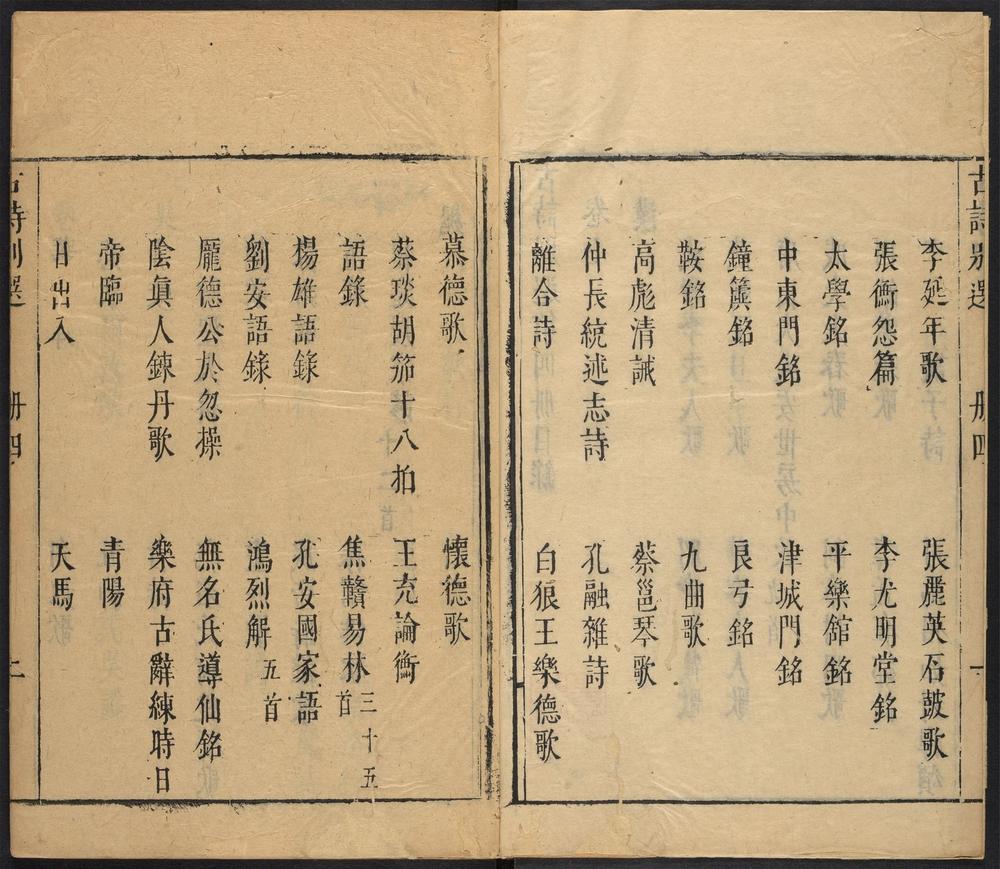 古詩別選 册四
李延年歌 張麗英石鼓歌
張衝怨篇 李尤明堂銘
太學銘 平樂舘銘
中東門銘 津城門銘
鐘簴銘 良弓銘
鞍銘 九曲歌
高彪清誡 蔡邕琴歌
仲長統述志詩 孔融雜詩
離合詩 白狼王樂德歌
慕德歌 懷德歌
蔡琰胡笳十八拍 王充論衡
語錄 焦贛易林三十五首
楊雄語錄 孔安國家語
劉安語錄 鴻烈解五首
龐德公於忽操 無名氏導仙銘
陰眞人鍊丹歌 樂府古辭練時日
帝臨 青陽
日出入 天馬
古詩別選 册四 上